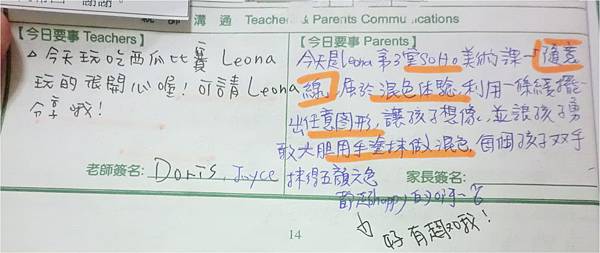 親師溝通 Teachers & Parents Communications
【今日要事 Teachers】
△今天玩吃西瓜比賽 Leona
玩的很開心喔！可請Leona
分享哦！
老師簽名: Doris, Joyce
【今日要事 Parents】
今天是Leona 第3堂SOHO美術課—隨意
線，屬於混色体驗，利用一條線擺
出任意图形，讓孩子想像，並讓孩子勇
敢大胆用手塗抹做混色，每個孩子双手
抹得五顏六色
家長簽名:
都超happy的呀～
好有趣哦！
14